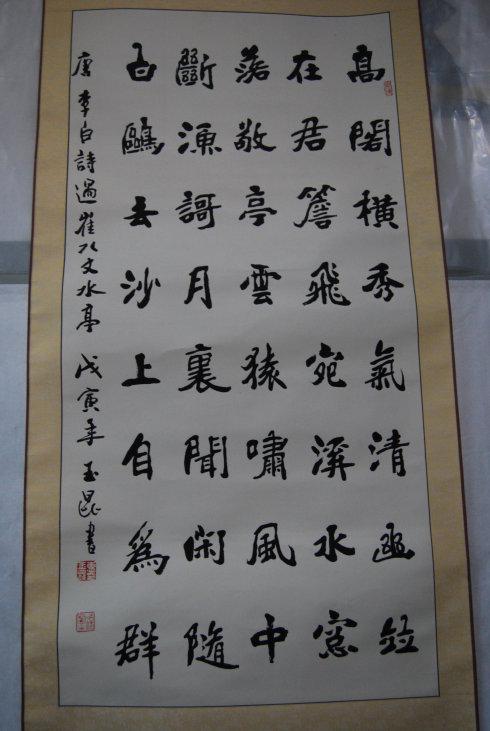 高閣橫秀氣清幽竝
在君簷飛宛溪水窓
落敬亭雲猿嘯風中
斷漁謌月裏聞閑隨
白鷗去沙上自爲群
唐李白詩過崔八丈水亭 戊寅年 玉昆書